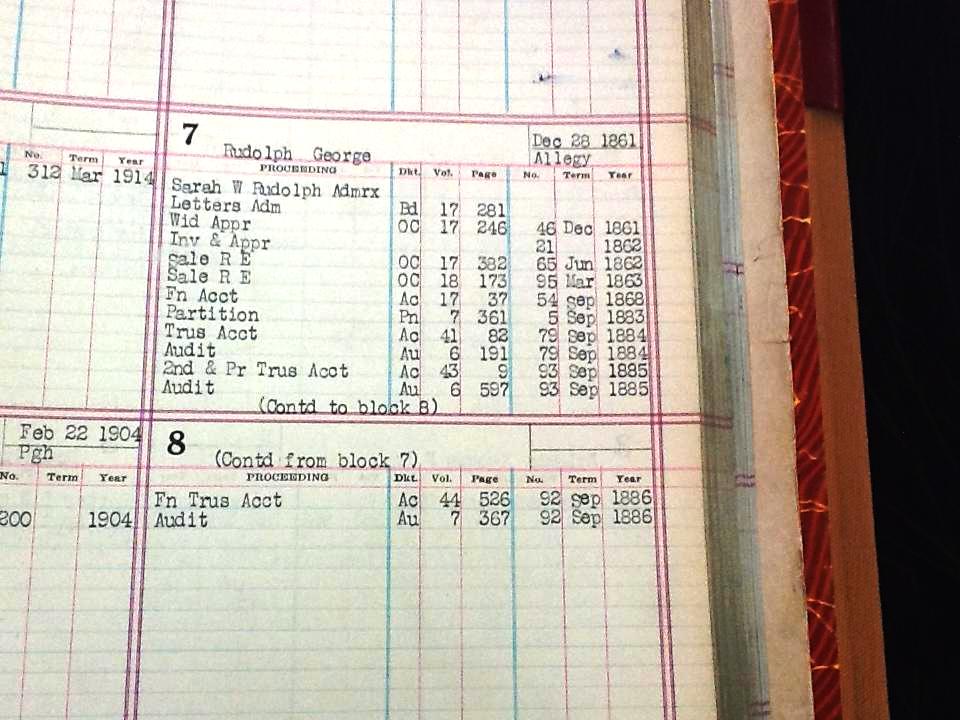 7 Rudolph George Dec 28 1861
Allegy
No. Term Year
312 Mar 1914
PROCEEDING Dkt. Vol. Page No. Term Year
Sarah W Rudolph Admrx
Letters Adm Bd 17 281
Wid Appr OC 17 246 46 Dec 1861
Inv & Appr 21 1862
sale R E OC 17 382 65 Jun 1862
Sale R E OC 18 173 95 Mar 1863
Fn Acct Ac 17 37 54 sep 1868
Partition Pn 7 361 5 Sep 1883
Trus Acct Ac 41 82 79 Sep 1884
Audit Au 6 191 79 Sep 1884
2nd & Pr Trus Acct Ac 43 9 93 Sep 1885
Audit Au 6 597 93 Sep 1885
(Contd to block 8)
Feb 22 1904
Pgh
No. Term Year
1904
8 (Contd from block 7)
PROCEEDING Dkt. Vol. Page No. Term Year
Fn Trus Acct Ac 44 526 92 sep 1886
Audit Au 7 367 92 Sep 1886